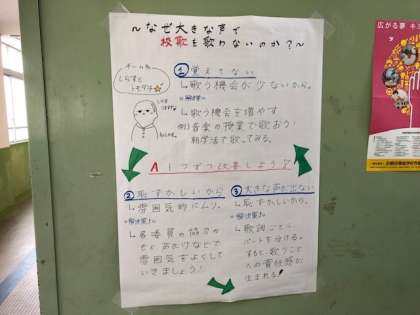 〜なぜ大きな声で
校歌を歌わないのか？〜
チーム名
しらすと
トモダチ
① 覚えてない
↳歌う機会が少ないから。
解決策
↳歌う機会を増やす
例)音楽の授業で歌おう!
朝学活で歌ってみる。
A 1つずつ改善しよう
② 恥ずかしいから
↳雰囲気的にムリ。
解決策
↳各委員の協力や
雰囲気をよくして
いきましょう!
③ 大きな声が出ない
↳恥ずかしいから。
解決策
↳歌詞ごとに
パートを分ける。
すると、歌うこと
への責任感が
生まれる!
広がる夢